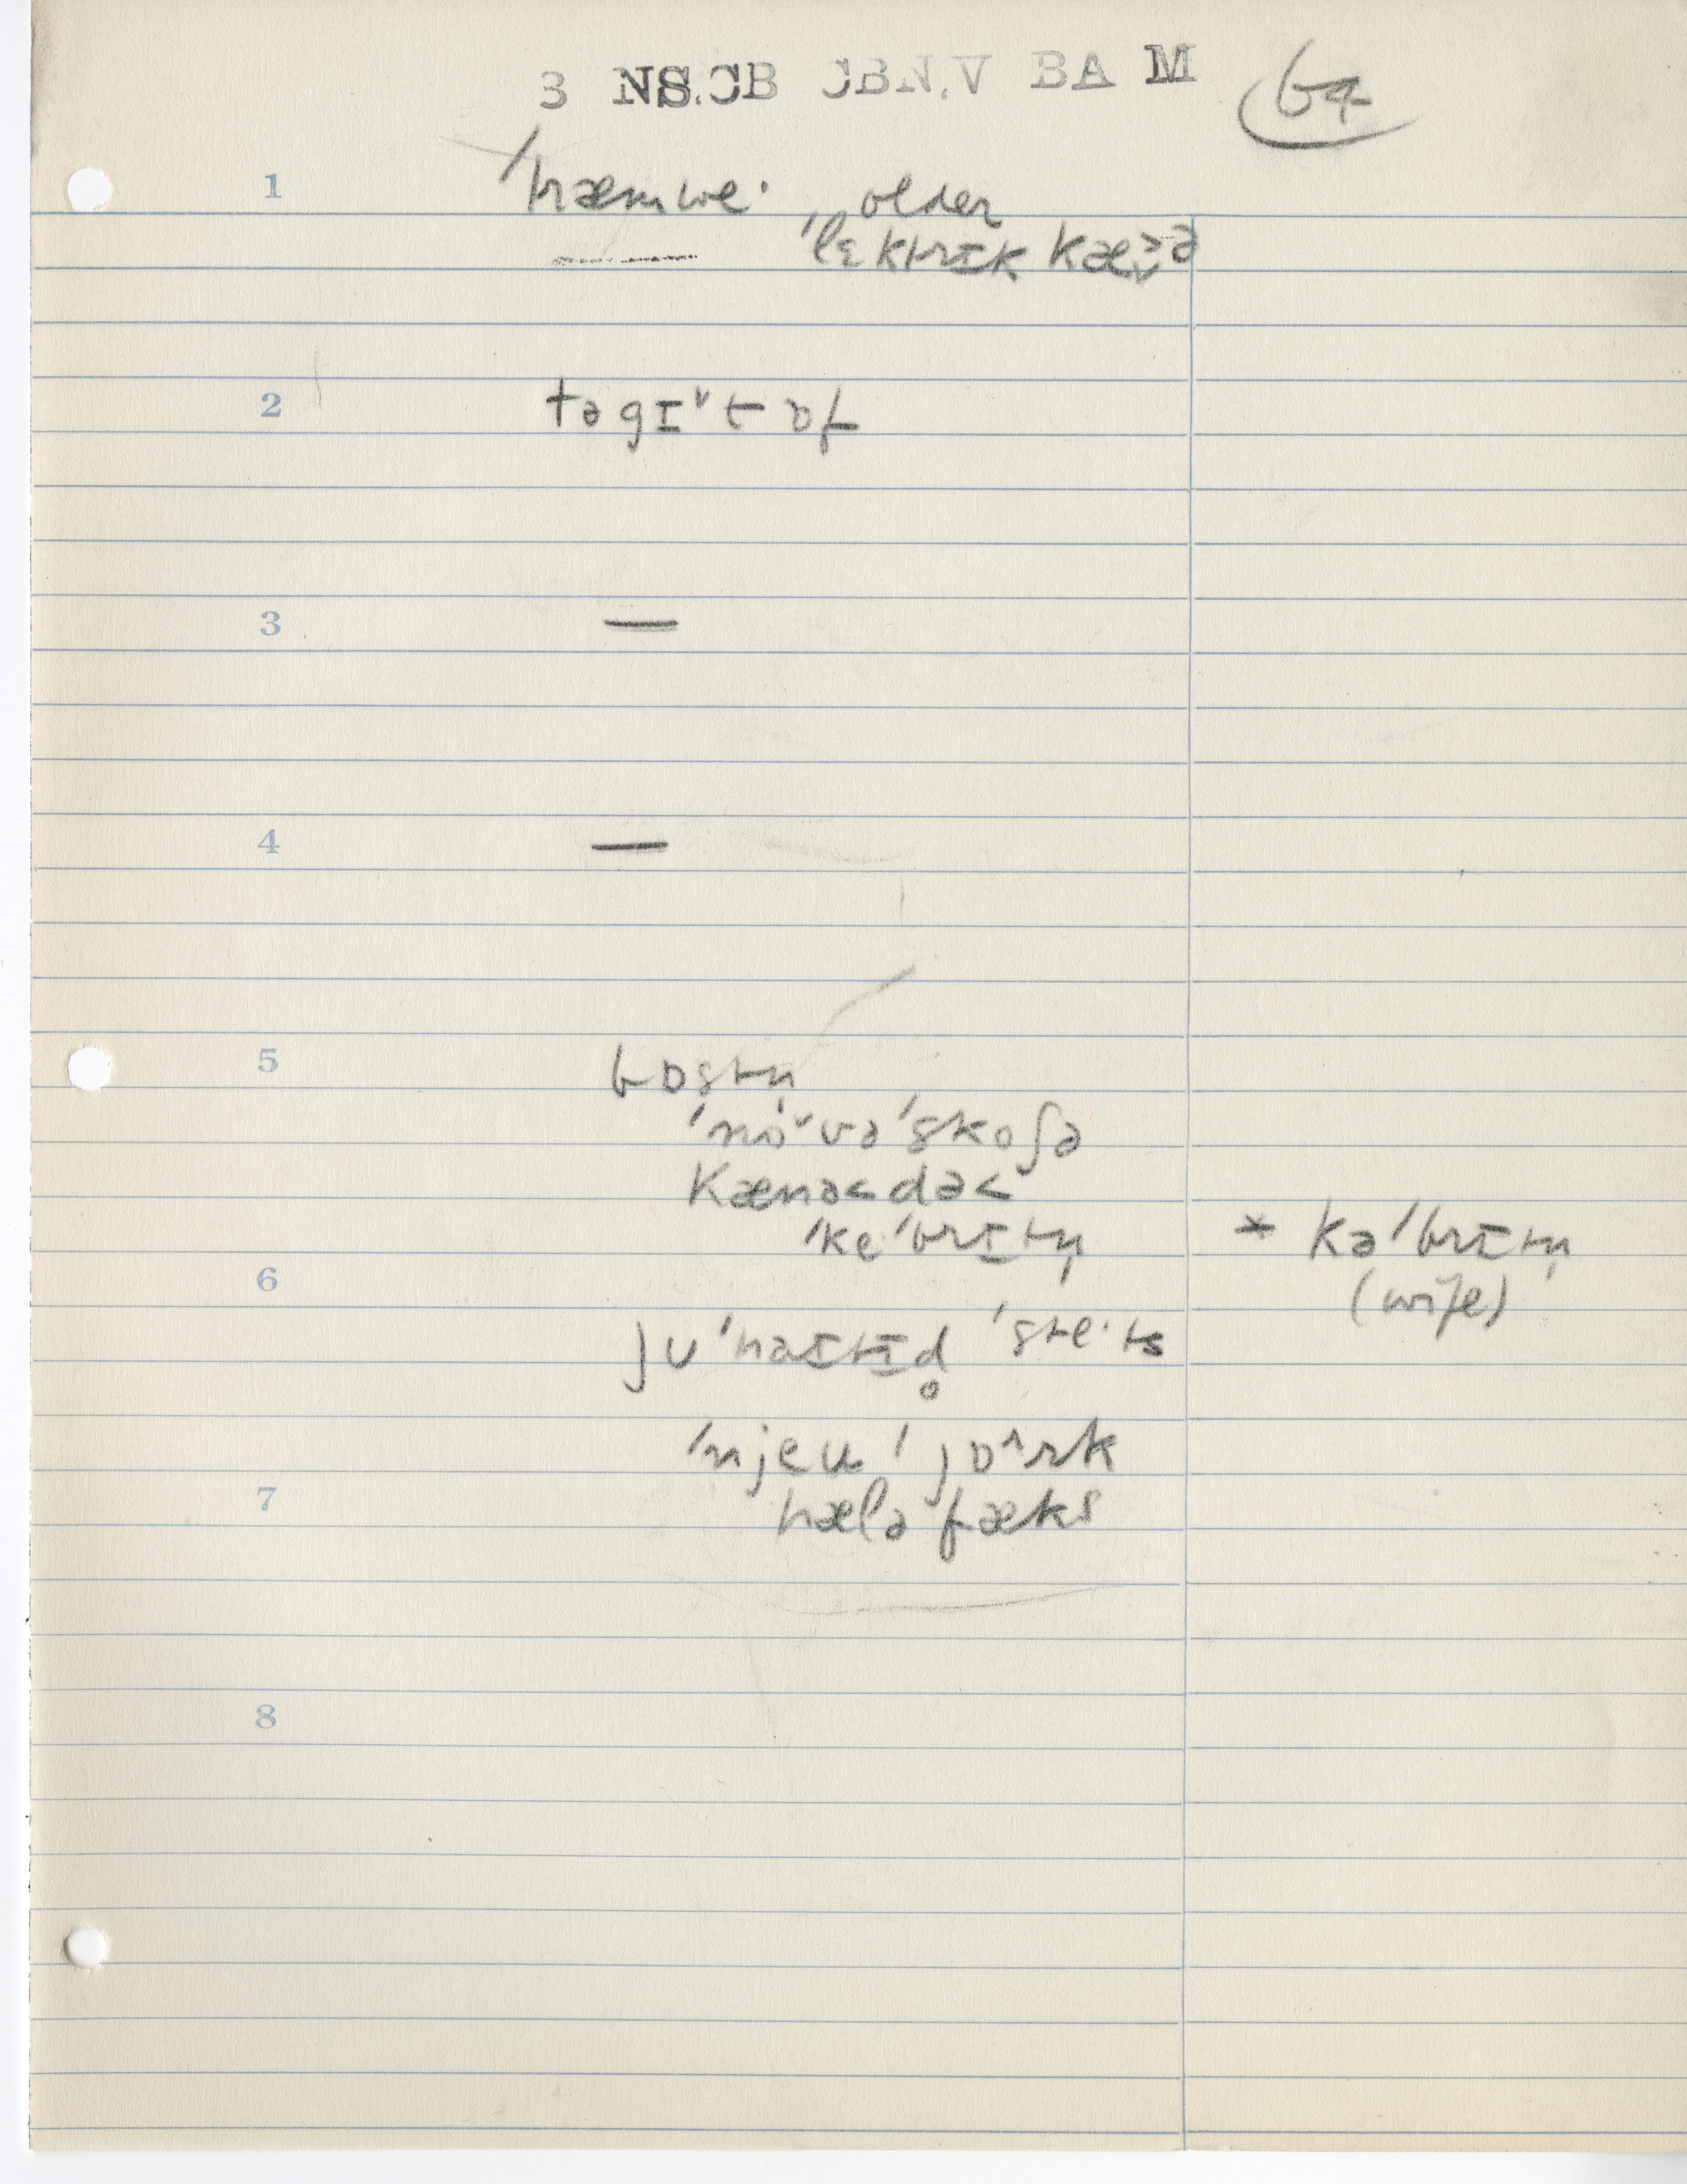 3 NS.CB CBN.V BA M 64
1 ˈtræmwe· older
ˈlɛktrɪk kæə
2 təgɪ˅t ɒf
3 —
4 —
5 bɒstn̩
ˈnoˑ˅vəˈskoʃə
kænə˂də˂
ˈkeˈbrɪtn̩ * kəˈbrɪtn̩
6 (wife)
juˈnaɪtɪd̥ ˈste·ts
ˈnjeu ˈjɒ^rk
7 hæləfæks
8